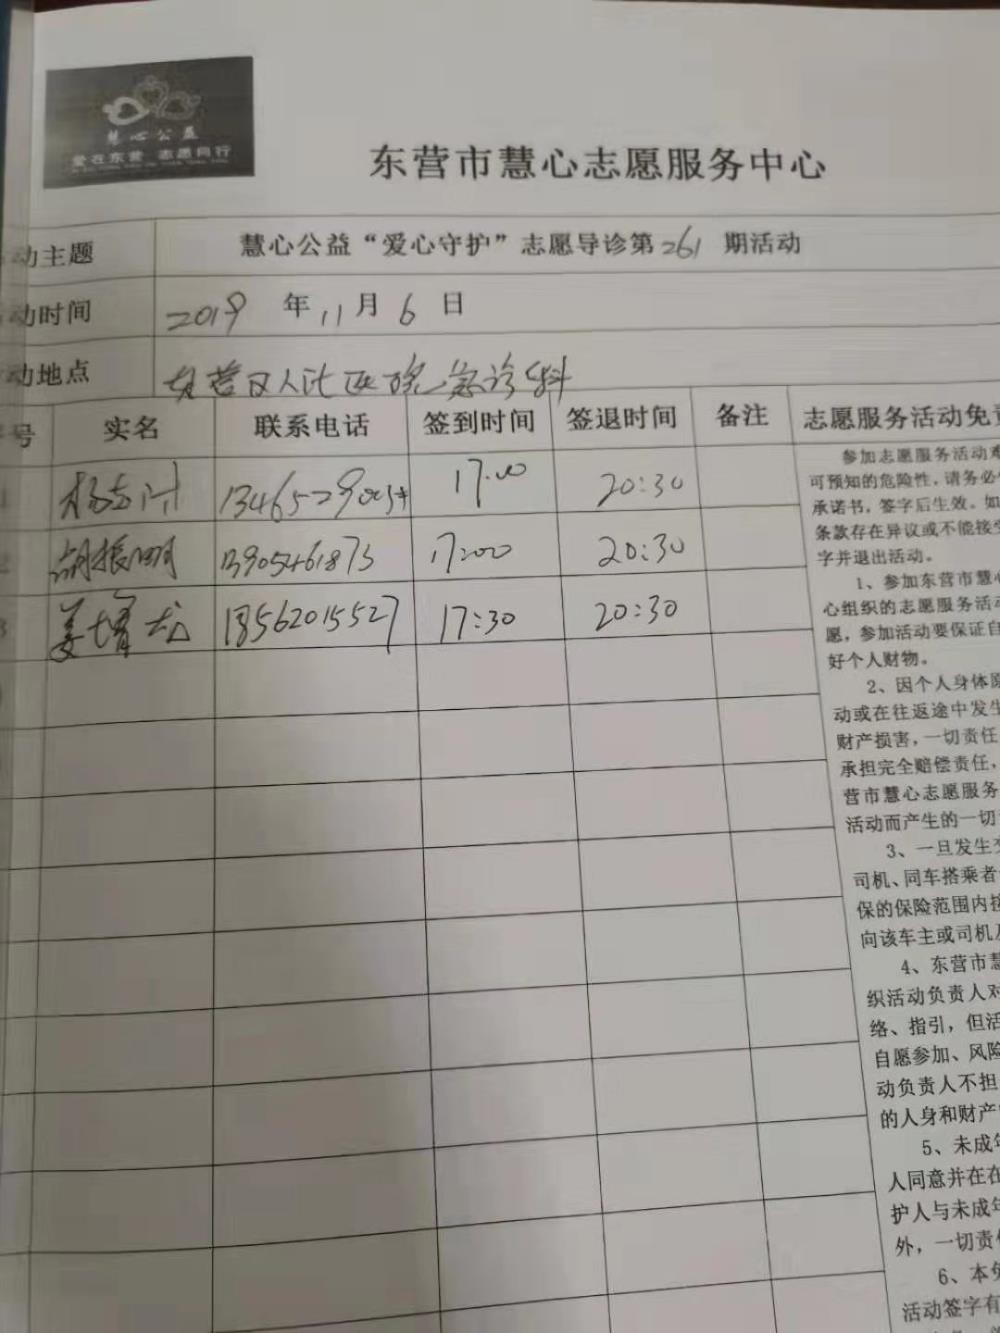 慧心公益
爱在东营 志愿同行
东营市慧心志愿服务中心
动主题 慧心公益“爱心守护”志愿导诊第261期活动
动时间 2019年11月6日
动地点 东营区人民医院急诊科
号 实名 联系电话 签到时间 签退时间 备注 志愿服务活动免责
17:00 20:30
2 胡振明 13905461873 17:00 20:30
3 姜 18562015527 17:30 20:30
参加志愿服务活动难
可预知的危险性，请务必
承诺书，签字后生效。如
条款存在异议或不能接受
字并退出活动。
1、参加东营市慧心
心组织的志愿服务活动
愿，参加活动要保证自
好个人财物。
2、因个人身体原
动或在往返途中发生
财产损害，一切责任
承担完全赔偿责任，
营市慧心志愿服务
活动而产生的一切
3、一旦发生交
司机、同车搭乘者
保的保险范围内按
向该车主或司机及
4、东营市慧
织活动负责人对
络、指引，但活
自愿参加、风险
动负责人不担
的人身和财产
5、未成年
人同意并在在
护人与未成年
外，一切责任
6、本免
活动签字有